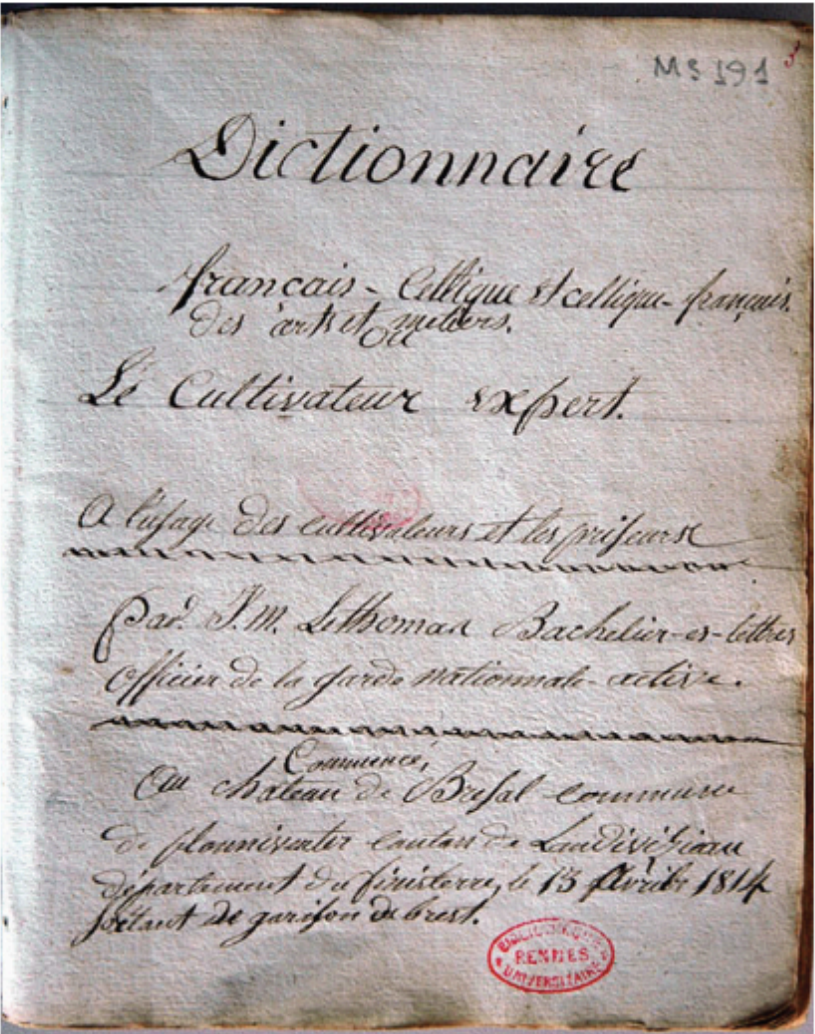 Ms 191
3
Dictionnaire
francais - Celtique et celtique - français.
des arts et métiers.
ou
Le Cultivateur expert.
A l'usage des cultivateurs et les priseurs
par J. M. Lethoman Bachelier-es-lettres
officier de la garde nationnale-active.
Commencé,
au château de Bresal commune
de plounivanter canton de Landivisiau
département du finisterre, le 13 février 1814
sortant de garison de brest.
BIBLIOTHEQUE
RENNES
UNIVERSITAIRE